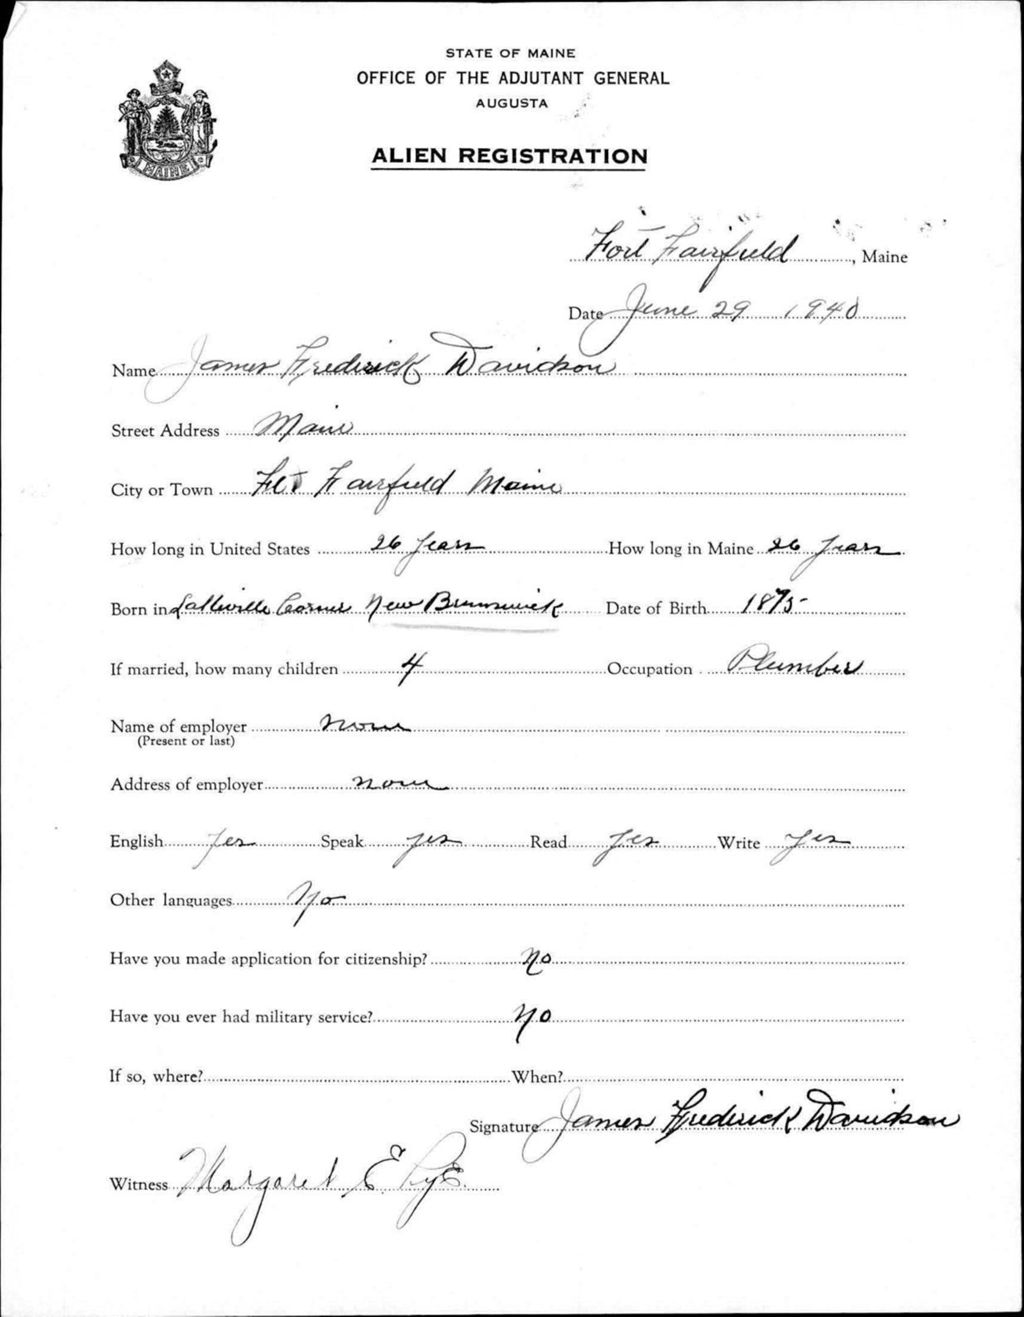 STATE OF MAINE
OFFICE OF THE ADJUTANT GENERAL
AUGUSTA
MAINE
ALIEN REGISTRATION
Fort Fairfield, Maine
Date June 29 1940
Name James Frederick Davidson
Street Address Main
City or Town Ft Fairfield Maine
How long in United States 26 Years How long in Maine 26 Years
Born in Corner New Brunswick Date of Birth 1875
If married, how many children 4 Occupation Plumber
Name of employer none
(Present or last)
Address of employer none
English Yes Speak yes Read Yes Write Yes
Other languages No
Have you made application for citizenship? No
Have you ever had military service? No
If so, where? When?
Signature James Frederick Davidson
Witness Margaret E. Pye